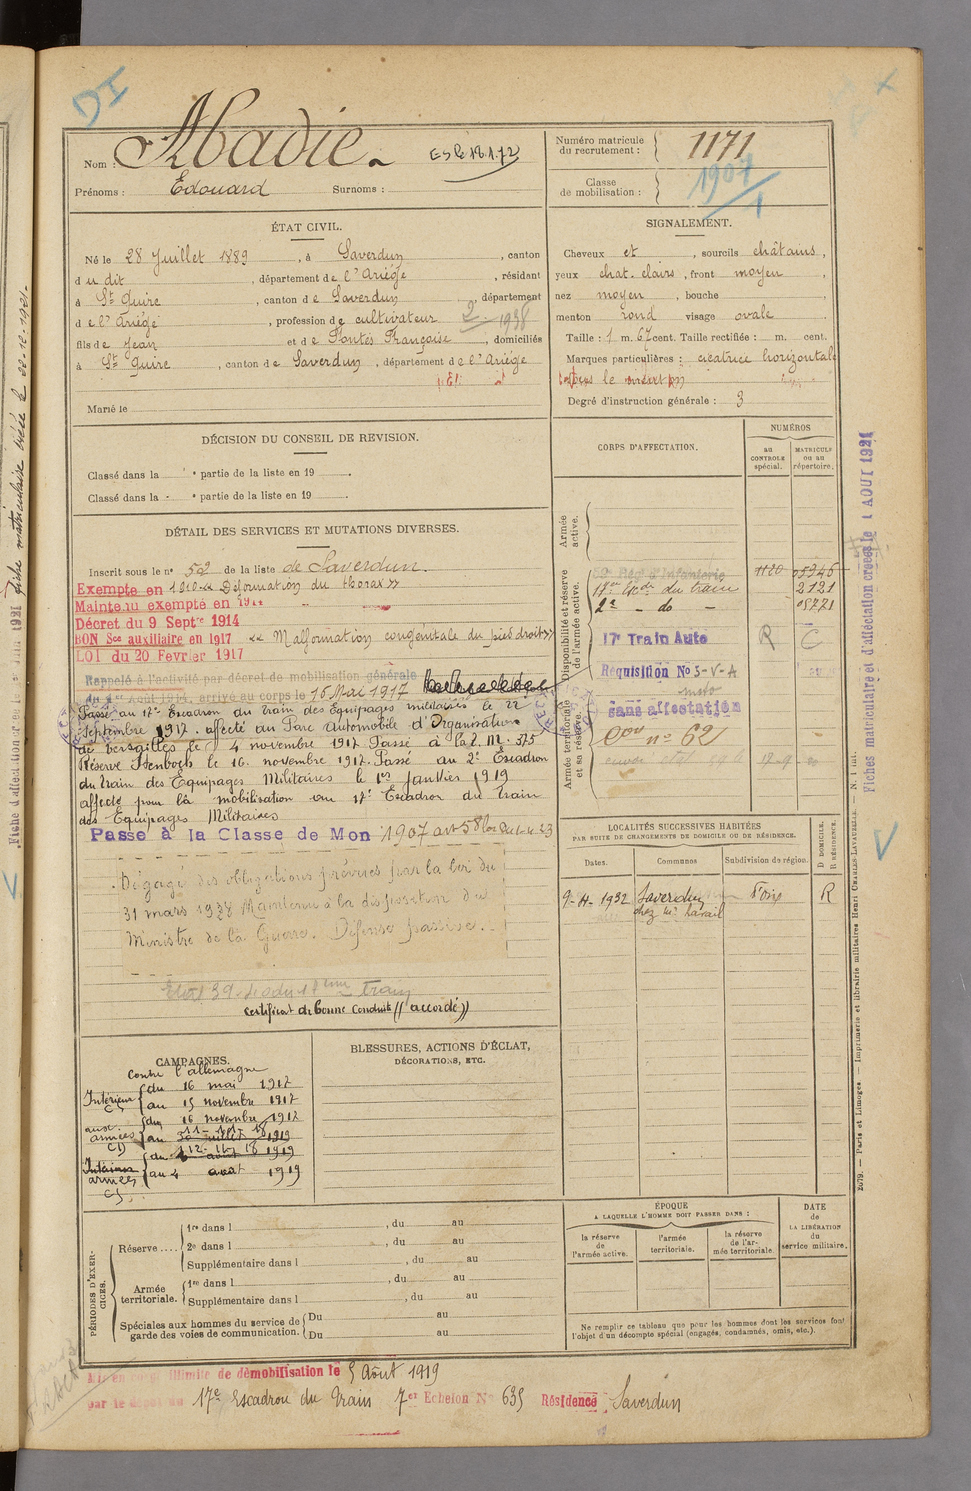 DI
Nom : Abadie
ESLe 18.1.72
Prénoms : Edouard Surnoms :
Numéro matricule du recrutement : 1171
Classe de mobilisation : 1907
ÉTAT CIVIL.
Né le 28 Juillet 1889, à Saverdun, canton
du dit, département de l'Ariège, résidant
à St Quirc, canton de Saverdun, département
de l'Ariège, profession de cultivateur
fils de Jean et de Pontés Françoise, domiciliés
à St Quirc, canton de Saverdun, département de l'Ariège
Marié le
SIGNALEMENT.
Cheveux et, sourcils châtains,
yeux chat. clairs, front moyen,
nez moyen, bouche,
menton rond visage ovale
Taille : 1 m. 67 cent. Taille rectifiée : m. cent.
Marques particulières : cicatrice horizontale
Degré d'instruction générale : 3
DÉCISION DU CONSEIL DE REVISION.
Classé dans la e partie de la liste en 19
Classé dans la e partie de la liste en 19
DÉTAIL DES SERVICES ET MUTATIONS DIVERSES.
Inscrit sous le no 52 de la liste de Saverdun.
Exempté en 1910 « Déformation du thorax »
Maintenu exempté en 1914
Décret du 9 Septre 1914
BON Sce auxiliaire en 1917 « Malformation congénitale du pied droit »
LOI du 20 Fevrier 1917
Rappelé à l'activité par décret de mobilisation générale
du 1er Août 1914, arrivé au corps le 16 Mai 1917
Passé au 17e Escadron du train des Equipages militaires le 22
septembre 1917. affecté au Parc Automobile d'Organisation
de Versailles le 4 novembre 1917. Passé à la T. M. 375
Réserve le 16. novembre 1917. Passé au 2e Escadron
du train des Equipages Militaires le 1er janvier 1919
affecté pour la mobilisation au 17e Escadron du train
des Equipages Militaires
Passé à la Classe de Mon 1907 art 58
Dégagé des obligations prévues par la loi du
31 mars 1928 Maintenu à la disposition du
Ministre de la Guerre. Défense passive.
Certificat de bonne conduite ((accordé))
CORPS D'AFFECTATION.
NUMÉROS
au CONTROLE spécial.
MATRICULE ou au répertoire.
Armée active.
Disponibilité et réserve de l'armée active.
Armée territoriale et sa réserve.
1120 05945
17e Escdn du train 2121
2e - do - 08771
17e Train Auto R C
Requisition No 3-V-A
moto
sans affectation
no 62
LOCALITÉS SUCCESSIVES HABITÉES
PAR SUITE DE CHANGEMENTS DE DOMICILE OU DE RÉSIDENCE.
Dates. Communes Subdivision de région. D DOMICILE. R RÉSIDENCE.
9-4-1932 Saverdun Foix R
CAMPAGNES.
Contre l'allemagne
Intérieur du 16 mai 1917
au 15 novembre 1917
aux armées du 16 novembre 1917
au 11-11-18
30 juillet 1919
du 12-11-18
août 1919
Intérieur
armées au 4 août 1919
BLESSURES, ACTIONS D'ÉCLAT,
DÉCORATIONS, ETC.
PÉRIODES D'EXERCICES.
Réserve .... 1re dans l , du au
2e dans l , du au
Supplémentaire dans l , du au
Armée territoriale. 1re dans l , du au
Supplémentaire dans l , du au
Spéciales aux hommes du service de garde des voies de communication. Du au
Du au
ÉPOQUE
A LAQUELLE L'HOMME DOIT PASSER DANS :
la réserve de l'armée active.
l'armée territoriale.
la réserve de l'armée territoriale.
DATE de LA LIBÉRATION du service militaire.
Ne remplir ce tableau que pour les hommes dont les services font
l'objet d'un décompte spécial (engagés, condamnés, omis, etc.).
Mis en congé illimité de démobilisation le 5 Août 1919
par le dépôt du 17e Escadron du Train 7er Echelon No 635 Résidence Saverdun
Fiches matriculaire et d'affectation créées le 1 AOUT 1921
2079. — Paris et Limoges. — Imprimerie et librairie militaires Henri CHARLES-LAVAUZELLE.